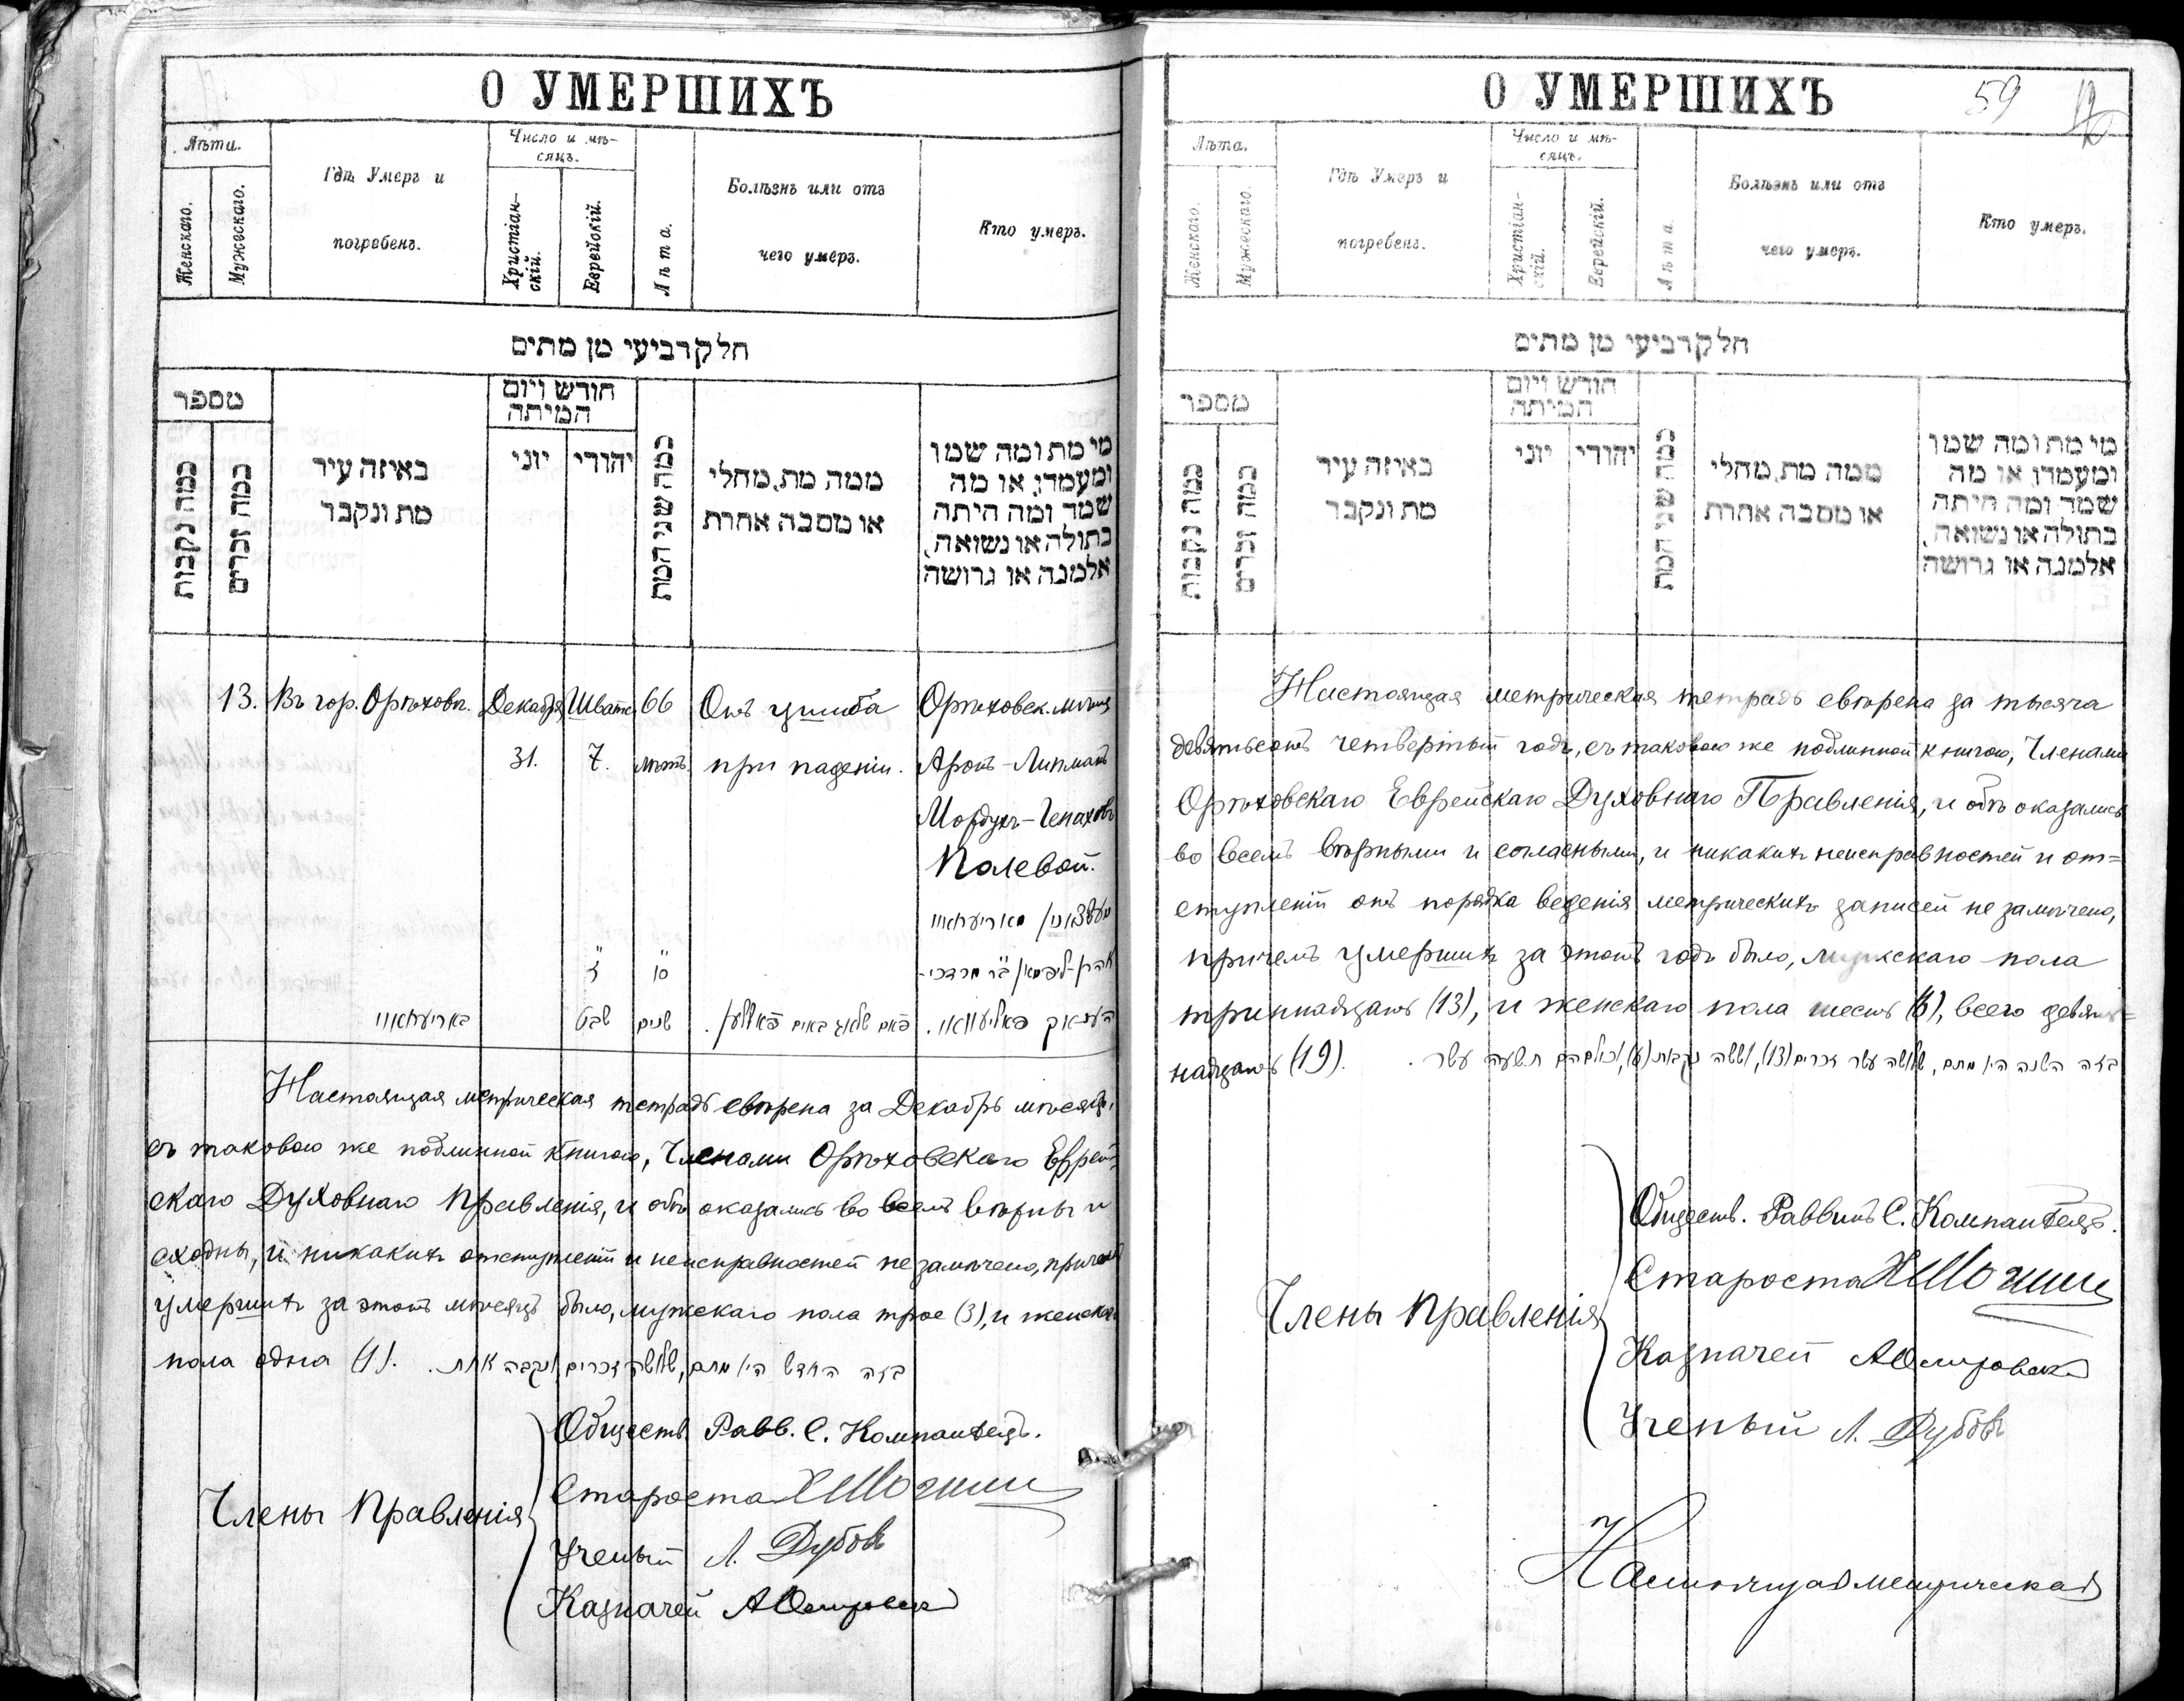 О УМЕРШИХЪ
Лѣта.
Гдѣ Умеръ и
погребенъ.
Число и мѣ-
сяцъ.
Женскаго.
Мужескаго.
Христіан-
скій.
Еврейскій.
Лѣта.
Болѣзнь или отъ
чего умеръ.
Кто умеръ.
חלק רביעי מן מתים
מספר
חודש ויום
המיתה
כמה נקבות
כמה זכרים
באיזה עיר
מת ונקבר
יוני
יהודי
כמה שני המת
ממה מת, מחלי
או מסבה אחרת
מי מת ומה שמו
ומעמדו, או מה
שמה ומה היתה
בתולה או נשואה,
אלמנה או גרושה
13. Въ гор. Орѣховѣ. Декабря Шватъ 66 Отъ ушиба Орѣховск.
31. 7. лѣтъ. при паденіи. Аронъ-Липманъ
Мордухъ-
Полевой.
שנים
שבט
Настоящая метрическая тетрадь свѣрена за Декабрь мѣсяцъ,
съ таковою же подлинной книгою, Членами Орѣховскаго Еврей-
скаго Духовнаго Правленія, и обѣ оказались во всемъ вѣрны и
сходны, и никакихъ отступленій и неисправностей не замѣчено, причемъ
умершихъ за этотъ мѣсяцъ было, мужскаго пола трое (3), и женскаго
пола одна (1). בזה החדש היו מתים, שלשה זכרים ונקבה אחת.
Члены Правленія
Обществ. Равв. С.
Староста
Ученый Л. Дубовъ
Казначей
О УМЕРШИХЪ
59
Лѣта.
Гдѣ Умеръ и
погребенъ.
Число и мѣ-
сяцъ.
Женскаго.
Мужескаго.
Христіан-
скій.
Еврейскій.
Лѣта.
Болѣзнь или отъ
чего умеръ.
Кто умеръ.
חלק רביעי מן מתים
מספר
חודש ויום
המיתה
כמה נקבות
כמה זכרים
באיזה עיר
מת ונקבר
יוני
יהודי
כמה שני המת
ממה מת, מחלי
או מסבה אחרת
מי מת ומה שמו
ומעמדו, או מה
שמה ומה היתה
בתולה או נשואה,
אלמנה או גרושה
Настоящая метрическая тетрадь свѣрена за тысяча
девятьсотъ четвертый годъ, съ таковою же подлинной книгою, Членами
Орѣховскаго Еврейскаго Духовнаго Правленія, и обѣ оказались
во всемъ вѣрными и согласными, и никакихъ неисправностей и от=
ступленій отъ порядка веденія метрическихъ записей не замѣчено,
причемъ умершихъ за этотъ годъ было, мужскаго пола
триннадцать (13), и женскаго пола шесть (6), всего девят=
надцать (19). בזה השנה היו מתים, שלשה עשר זכרים (13), וששה נקבות (6), תשעה עשר.
Члены Правленія
Обществ. Раввинъ С.
Староста
Казначей
Ученый Л. Дубовъ
Настоящая метрическая